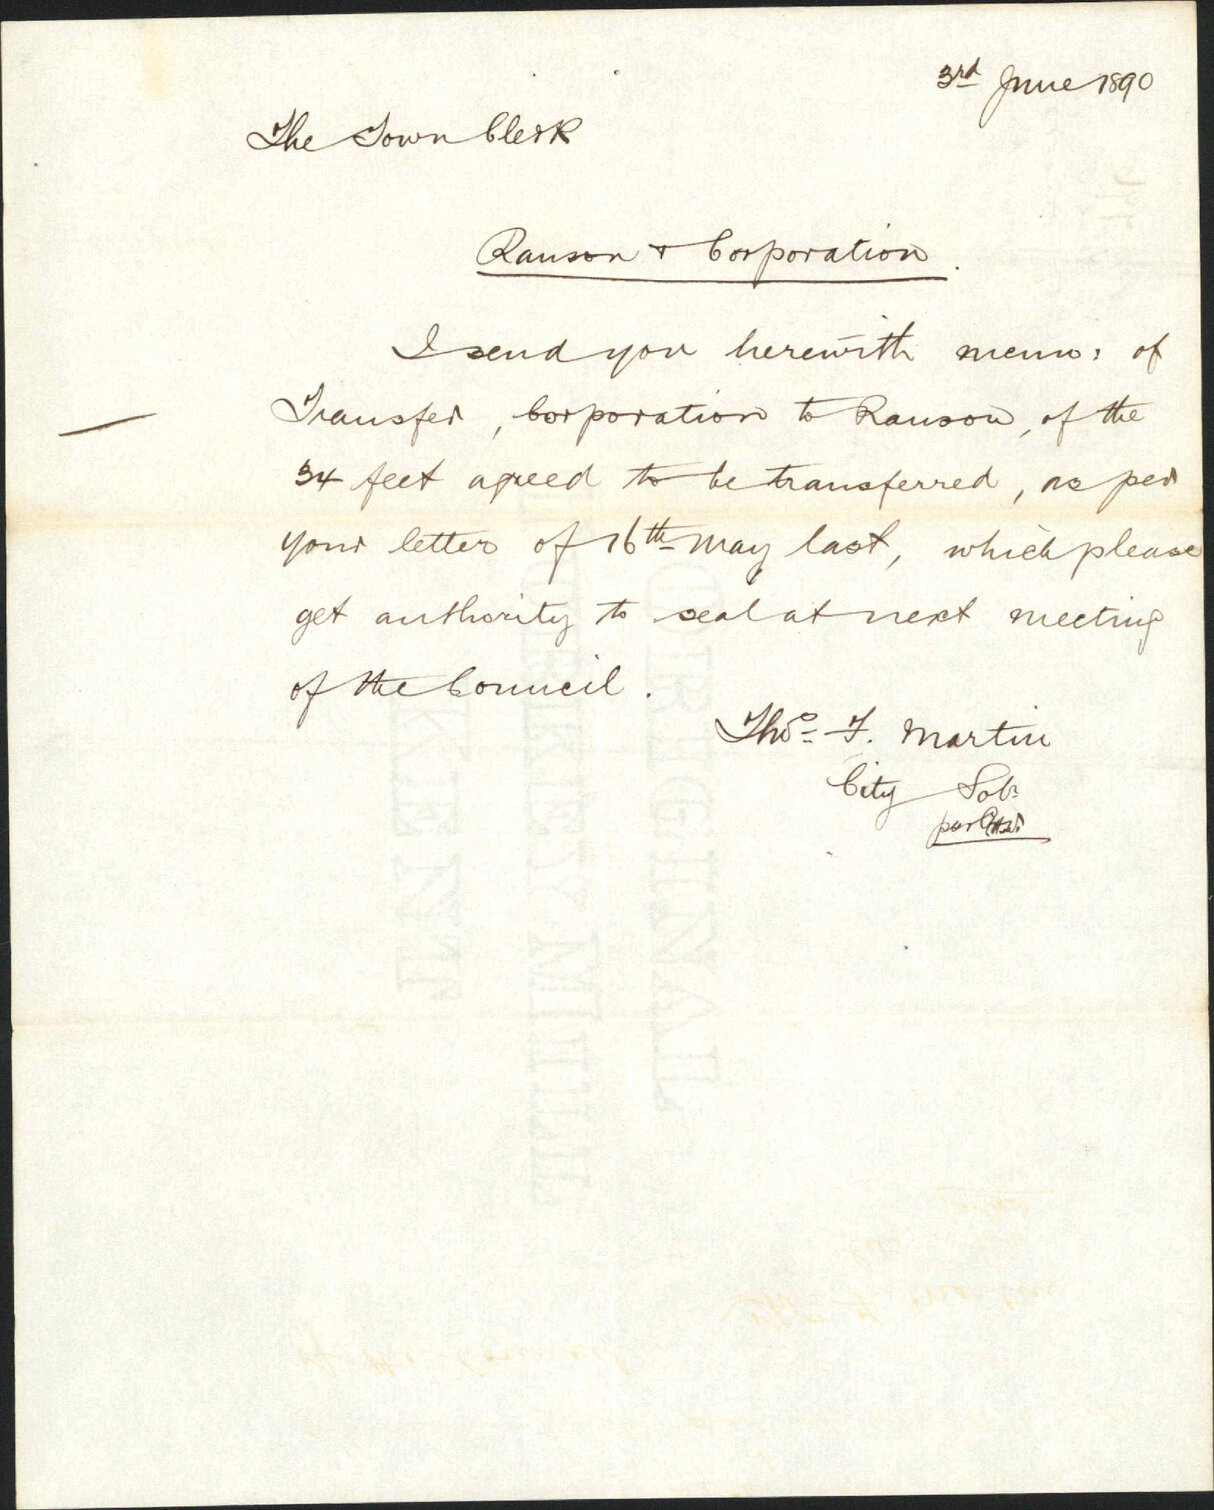 3rd June 1890
The Town Clerk
Ranson & Corporation.
I send you herewith memo: of
Transfer, Corporation to Ranson, of the
34 feet agreed to be transferred, as per
your letter of 16th May last, which please
get authority to seal at next meeting
of the Council.
Thos. F. Martin
City Solr
per
ORIGINAL
TURKEY MILL
KENT